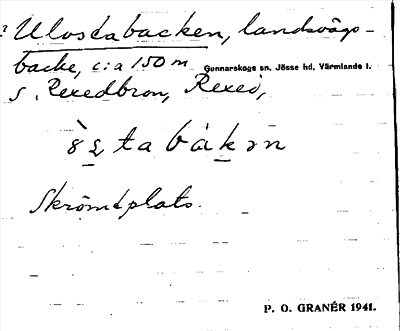 ? Ulostabacken, landsvägs-
backe, c:a 150 m Gunnarskogs sn, Jösse hd, Värmlands l.
S. Rexedbron, Rexed,
Skrömtplats.
P. O. GRANÉR 1941.